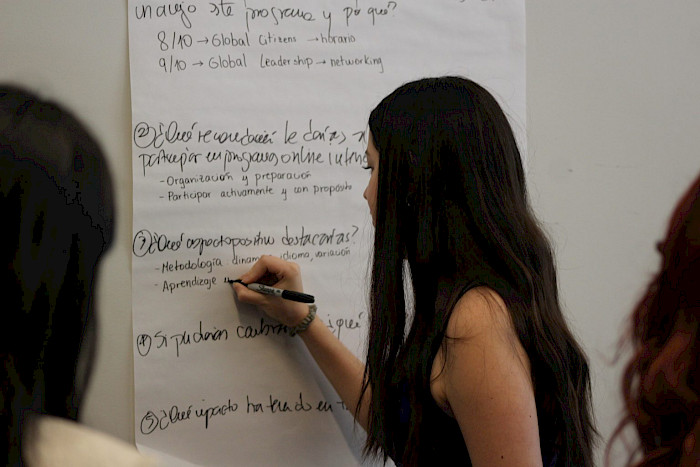 un amigo este programa y por qué?
8/10 → Global Citizens → horario
9/10 → Global Leadership → networking
② ¿Qué recomendación le darías a
participar en programas online
- Organización y preparación
- Participar activamente y con propósito
③ ¿Qué aspecto positivo destacarías?
- Metodología idioma, variación
- Aprendizaje
④ Si pudieran qué
⑤ ¿Qué impacto ha tenido en